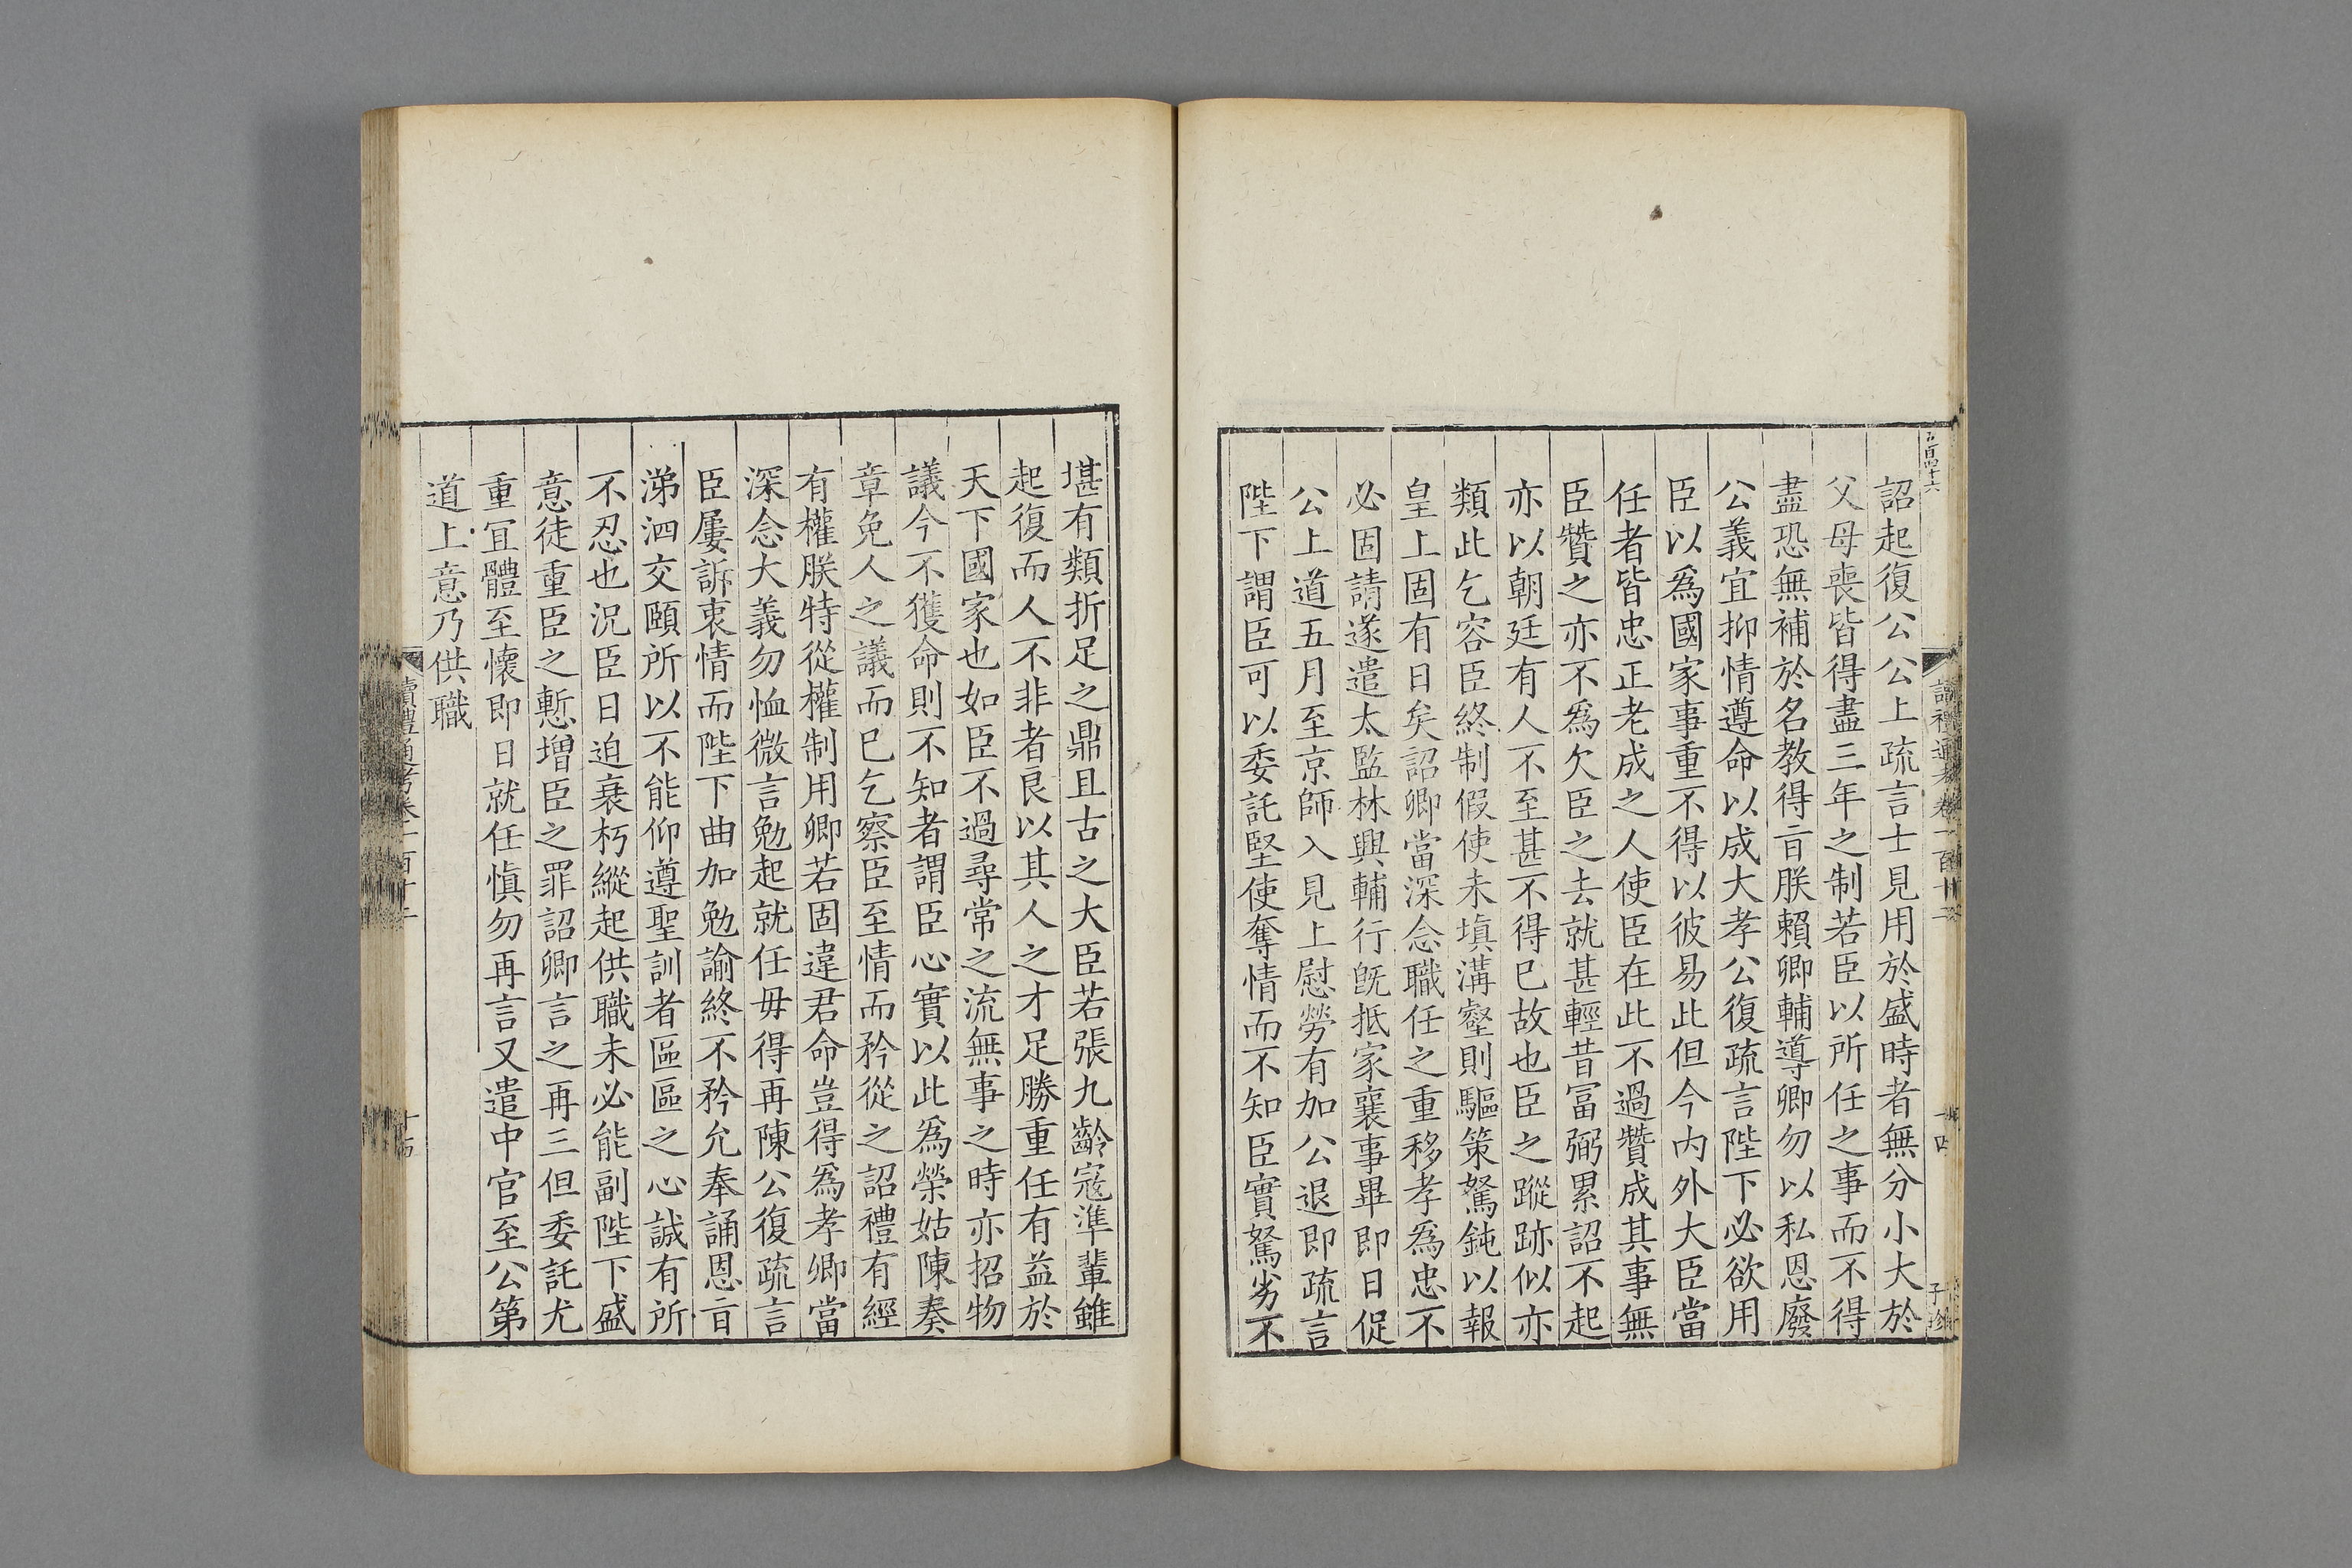 五百四十六
讀禮通考卷一百十二
十四
子珍
詔起復公公上疏言士見用於盛時者無分小大於
父母喪皆得盡三年之制若臣以所任之事而不得
盡恐無補於名教得㫖朕賴卿輔導卿勿以私恩廢
公義宜抑情遵命以成大孝公復疏言陛下必欲用
臣以爲國家事重不得以彼易此但今内外大臣當
任者皆忠正老成之人使臣在此不過贊成其事無
臣贊之亦不爲欠臣之去就甚輕昔富弼累詔不起
亦以朝廷有人不至甚不得已故也臣之蹤跡似亦
類此乞容臣終制假使未填溝壑則驅策駑鈍以報
皇上固有日矣詔卿當深念職任之重移孝爲忠不
必固請遂遣太監林興輔行旣抵家襄事畢即日促
公上道五月至京師入見上慰勞有加公退即疏言
陛下謂臣可以委託堅使奪情而不知臣實駑劣不
堪有類折足之鼎且古之大臣若張九齡寇準輩雖
起復而人不非者良以其人之才足勝重任有益於
天下國家也如臣不過尋常之流無事之時亦招物
議今不獲命則不知者謂臣心實以此爲榮姑陳奏
章免人之議而已乞察臣至情而矜從之詔禮有經
有權朕特從權制用卿若固違君命豈得爲孝卿當
深念大義勿恤微言勉起就任毋得再陳公復疏言
臣屢訴衷情而陛下曲加勉諭終不矜允奉誦恩㫖
涕泗交頤所以不能仰遵聖訓者區區之心誠有所
不忍也況臣日迫衰朽縱起供職未必能副陛下盛
意徒重臣之慙增臣之罪詔卿言之再三但委託尤
重宜體至懷即日就任愼勿再言又遣中官至公第
道上意乃供職
讀禮通考卷一百十二
十四